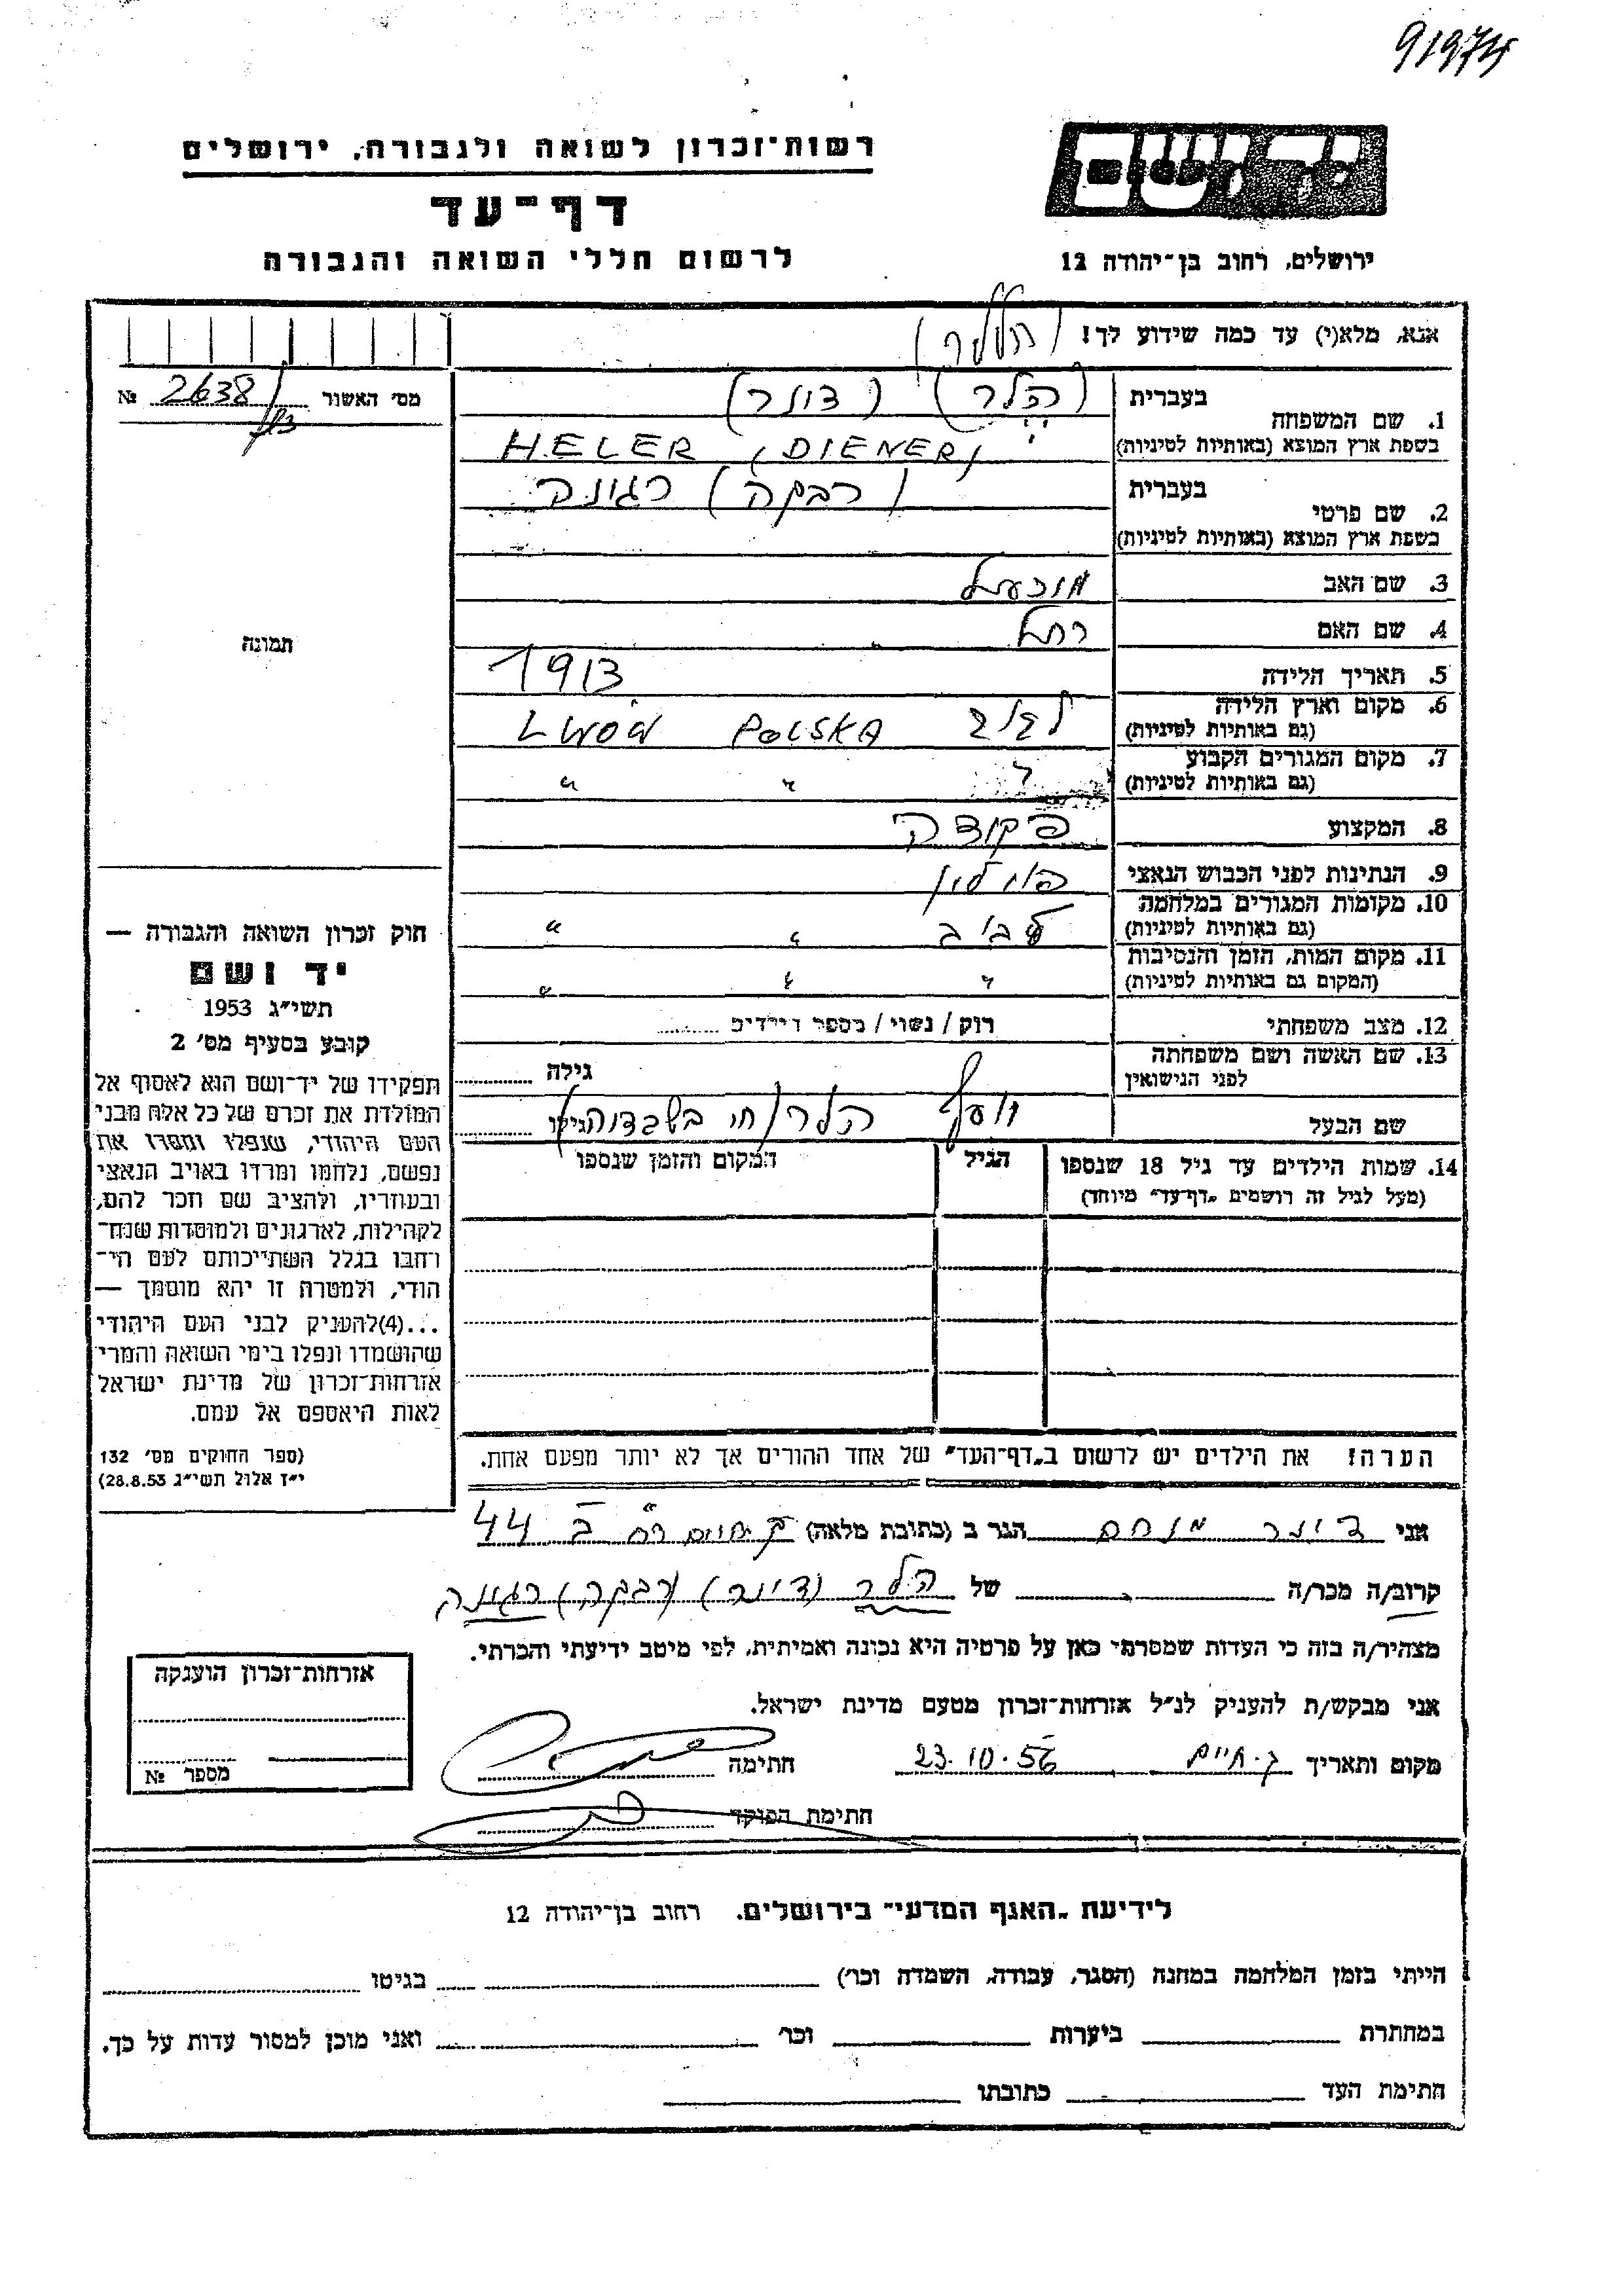 91974
רשות־זכרון לשואה ולגבורה, ירושלים
דף־עד
לרשום חללי השואה והגבורה
יד ושם
ירושלים, רחוב בן־יהודה 12
אנא, מלא(י) עד כמה שידוע לך!
מס׳ האשור 2638 №
1. שם המשפחה
בעברית (הלר) (דינר)
בשפת ארץ המוצא (באותיות לטיניות) HELER (DIENER)
2. שם פרטי
בעברית (רבקה) רגינה
בשפת ארץ המוצא (באותיות לטיניות)
3. שם האב
4. שם האם רחל
5. תאריך הלידה 1913
6. מקום וארץ הלידה
(גם באותיות לטיניות) לבוב POLSKA LWÓW
7. מקום המגורים הקבוע
(גם באותיות לטיניות) " " "
8. המקצוע פקידה
9. הנתינות לפני הכבוש הנאצי פולין
10. מקומות המגורים במלחמה
(גם באותיות לטיניות) לבוב " "
11. מקום המות, הזמן והנסיבות
(המקום גם באותיות לטיניות) " " "
12. מצב משפחתי רוק / נשוי / מספר הילדים
13. שם האשה ושם משפחתה
לפני הנישואין גילה
שם הבעל יוסף הלר (חי בשבדיה) גילו
14. שמות הילדים עד גיל 18 שנספו
(מעל לגיל זה רושמים „דף־עד״ מיוחד)
הגיל
המקום והזמן שנספו
תמונה
חוק זכרון השואה והגבורה —
יד ושם
תשי״ג 1953
קובע בסעיף מס׳ 2
תפקידו של יד־ושם הוא לאסוף אל
המולדת את זכרם של כל אלה מבני
העם היהודי, שנפלו ומסרו את
נפשם, נלחמו ומרדו באויב הנאצי
ובעוזריו, ולהציב שם וזכר להם,
לקהילות, לארגונים ולמוסדות שנח־
רחבו בגלל השתייכותם לעם הי־
הודי, ולמטרה זו יהא מוסמך —
...(4)להעניק לבני העם היהודי
שהושמדו ונפלו בימי השואה והמרי
אזרחות־זכרון של מדינת ישראל
לאות היאספם אל עמם.
(ספר החוקים מס׳ 132
י״ז אלול תשי״ג 28.8.53)
הערה! את הילדים יש לרשום ב„דף־העד״ של אחד ההורים אך לא יותר מפעם אחת.
אני דינר מנחם הגר ב (כתובת מלאה) ק. חיים רח׳ ב 44
קרוב/ה מכר/ה של הלר (דינר) (רבקה) רגינה
מצהיר/ה בזה כי העדות שמסרתי כאן על פרטיה היא נכונה ואמיתית, לפי מיטב ידיעתי והכרתי.
אני מבקש/ת להעניק לנ״ל אזרחות־זכרון מטעם מדינת ישראל.
מקום ותאריך ק. חיים 23.10.56 חתימה
חתימת הפוקד
אזרחות־זכרון הוענקה
מספר №
לידיעת „האגף המדעי״ בירושלים, רחוב בן־יהודה 12
הייתי בזמן המלחמה במחנה (הסגר, עבודה, השמדה וכו׳) בגיטו
במחתרת ביערות וכו׳ ואני מוכן למסור עדות על כך.
חתימת העד כתובתו